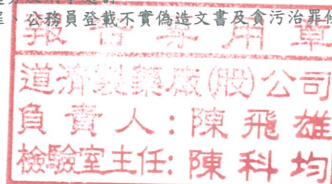 、公務員登載不實偽造文書及貪污治罪條
報告專用章
道濟製藥廠(股)公司
負責人:陳飛雄
檢驗室主任:陳科均